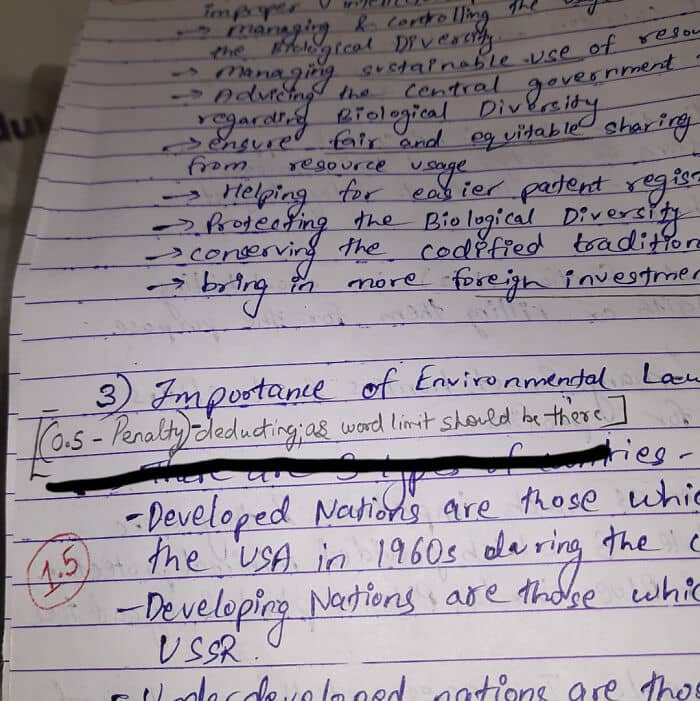 improper
→ managing & controlling the
the Biological Diversity
→ managing sustainable use of resou
→ Advicing the central government
regarding Biological Diversity
→ ensure fair and equitable sharing
from resource usage
→ Helping for easier patent regis
→ Protecting the Biological Diversity
→ conserving the codified tradition
→ bring in more foreign investmen
3) Importance of Environmental Law
[(0.5 - Penalty)-deducting; as word limit should be there]
There are 3 types of countries -
- Developed Nations are those whic
the USA in 1960s during the c
1.5
- Developing Nations are those whic
USSR.
- Underdeveloped nations are thos